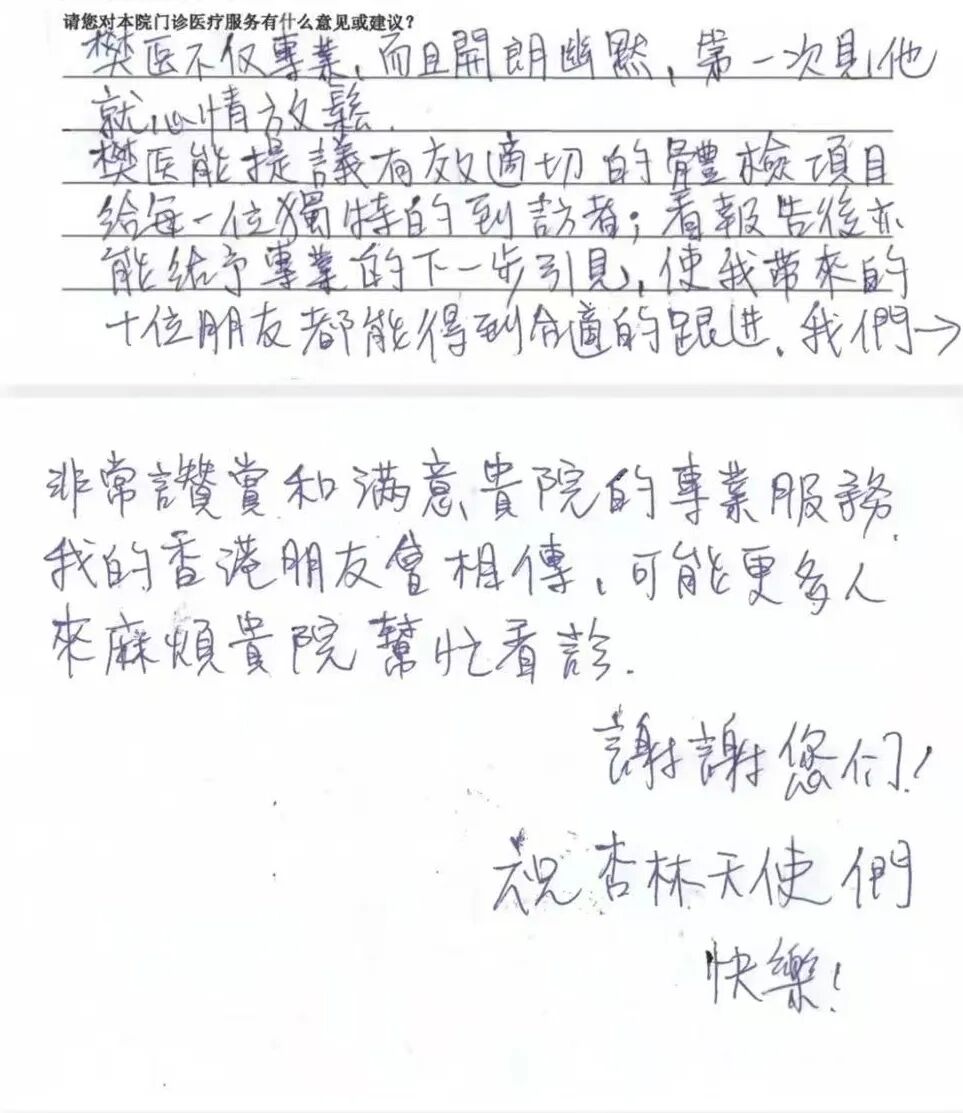 请您对本院门诊医疗服务有什么意见或建议？
樊医不仅專業，而且開朗幽默，第一次見他
就心情放鬆.
樊医能提議有效適切的體檢項目
给每一位獨特的到訪者；看報告後亦
能给予專業的下一步引見，使我带來的
十位朋友都能得到合適的跟进. 我們→
非常讚賞和满意貴院的專業服務.
我的香港朋友會相傳，可能更多人
來麻煩貴院幫忙看診.
謝謝您们！
祝杏林天使們
快樂！